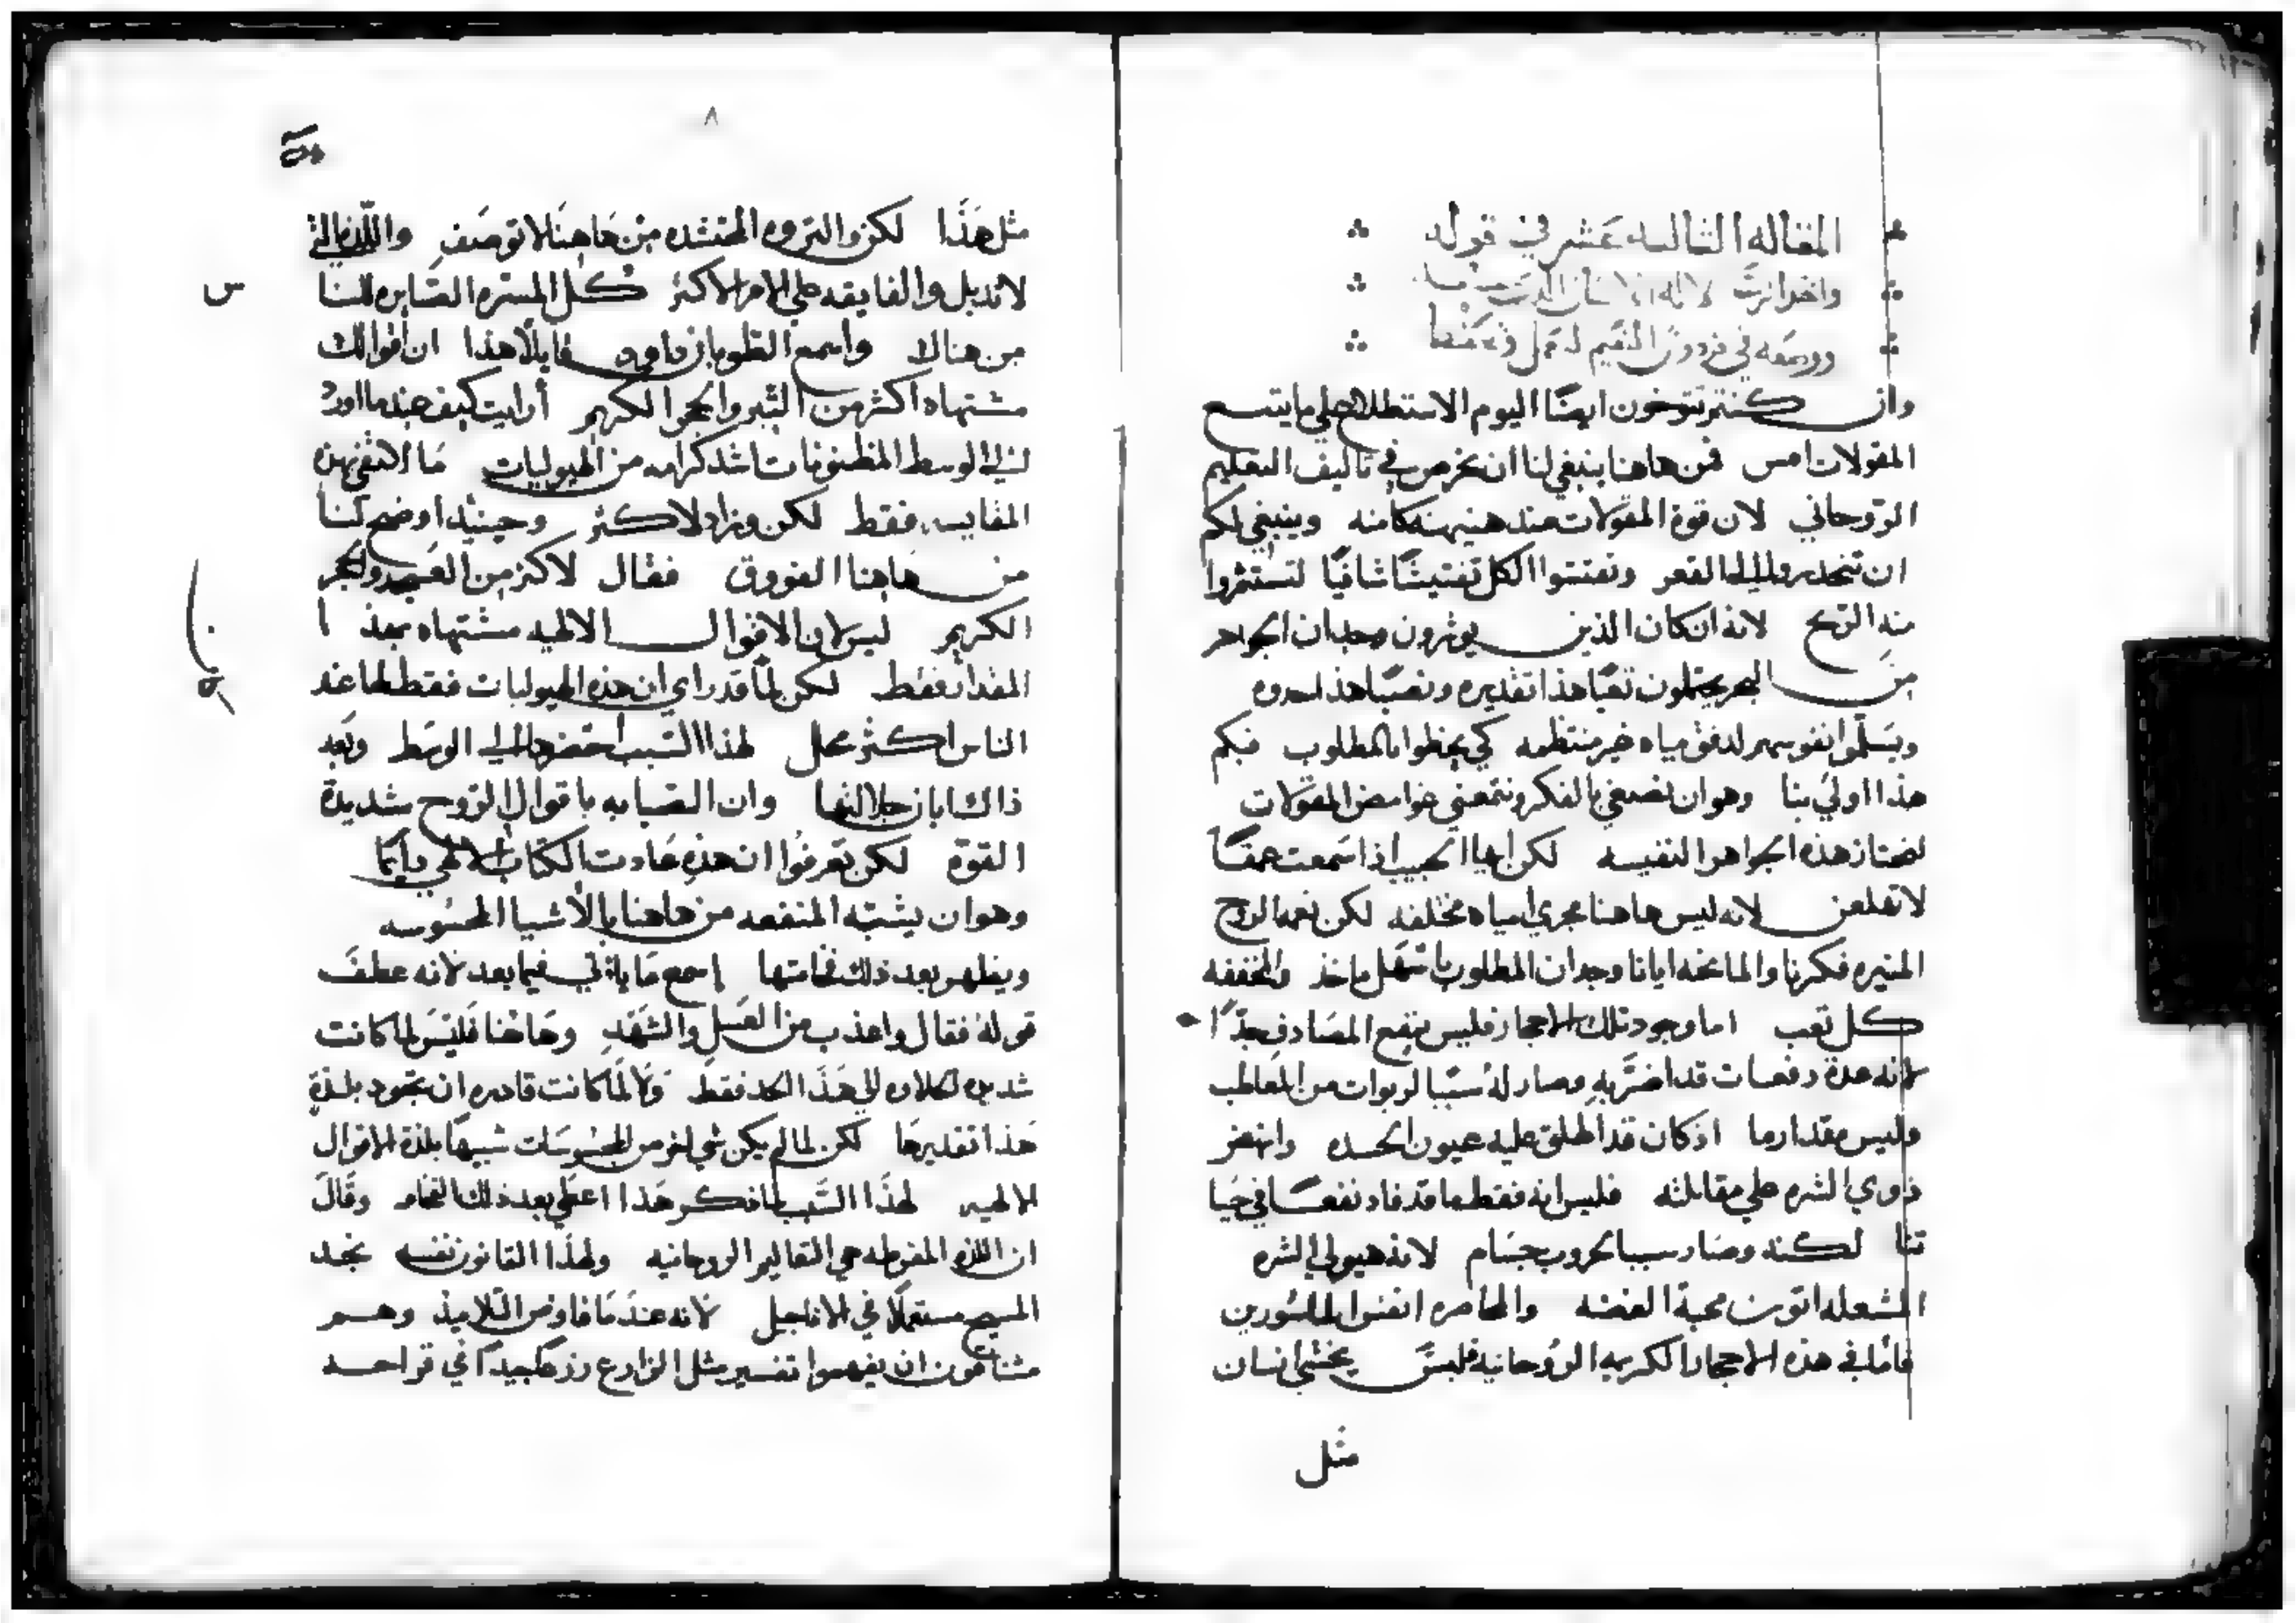 المقاله الثالثه عشر في قوله
واخذ الرب الاله الانسان الذي
ووضعه في فردوس النعيم ليعمل فيه
وان كنتم تتوخون ايضًا اليوم الاستطلاع علي ما يتبع
المقولات امس فمن هاهنا ينبغي لنا ان نخوض في تاليف التعليم
الروحاني لان قوة المقولات عند هنيهنه كامنه وينبغي لكم
ان تنحدروا الي القعر وتفتشوا الكل تفتيشًا شافيًا لتستثمروا
منه الربح لانه ان كان الذين يوثرون وجدان الجواهر
من البحر يحتملون تعبًا هذا تقديره ونصبًا هذا حدوه
ويسلموا نفوسهم لدفق مياه غير منتظمه كي يحظوا بالمطلوب فبكم
هذا اولي بنا وهو ان نصغي بالفكر ونتمعني غوامض المقولات
لضمتان هذه الجواهر النفيسه لكن ايها الحبيب اذا سمعت عمقًا
لا تقلعن لانه ليس هاهنا مجري امياه مختلفه لكن نعمة الروح
المنيره فكرنا والمانحه ايانا وجدان المطلوب باسهل ماخذ والمخففه
كل تعب اما وجود تلك الاحجار فليس ينفع المصادف جدًا
لانه عدة دفعات قد اضر به وصار له سببًا لربوات من المعاطب
وليس مقدار ما اذ كان قد اطلق عليه عيون الحسده وانهض
ذوي الشره علي مقابلته فليس انه فقط ما قد فاد نفعًا في حيا
تنا لكنه وصار سببا لحروب جسام لانه هيولي الشره
المشعله اتون محبة الفضه والحاصره انفس الماسورين
فاما في هذه الاحجار الكريمه الروحانيه فليس يخشي انسان
مثل
مثل هذا لكن والثروه المحتشده من هاهنا لا توصف واللذه التي
لا تدبل والفايقه علي الامر الاكثر كل المسره الصايره لنا
من هناك واسمع الطوبان داوود قايلًا هذا ان اقوالك
مشتهاه اكثر من التبر والحجر الكريم أرايت كيف عندما اورد
لنا الي الوسط المظنونات اشد كرامه من الهيوليات ما اكتفي بهذه
المقايسه فقط لكن وزاد لاكثر وحينيذ اوضح لنا
من هاهنا الفروق فقال لاكثر من العسجد والحجر
الكريم ليس لان الاقوال الالهيه مشتهاه بهذا
المقدار فقط لكن لما قد راي ان هذه الهيوليات فقط لها عند
الناس اكثر محل لهذا السبب احضرها الي الوسط وبعد
ذاك ابان جلالتها وان الصبابه باقوال الروح شديدة
القوه لكن تعرفوا ان هذه عادت الكتاب الالهي دايمًا
وهو ان يشبّه المنفعه من هاهنا بالأشيا المحسوسه
ويظهر بعد ذلك فخامتها إسمع ما ياتي فيما بعد لانه عطف
قوله فقال واعذب من العسل والشهد وهاهنا فليس لما كانت
شديده الحلاوه الي هذا الحد فقط ولا لما كانت قادره ان تجود بلذةٍ
هذا تقديرها لكن لما لم يكن شي اخر من المحسوسات شبيهًا بلذة الاقوال
الالهيه لهذا السبب لما ذكر هذا اعطي بعد ذلك الفخام وقال
ان اللذه المفرطه هي التعاليم الروحانيه ولهذا القانون نفسه نجد
المسيح مستعملًا في الاناجيل لانه عندما فاوض التلاميذ وهم
مشتاقون ان يفهموا تفسير مثل الزارع زرعًا جيدًا في قراحه